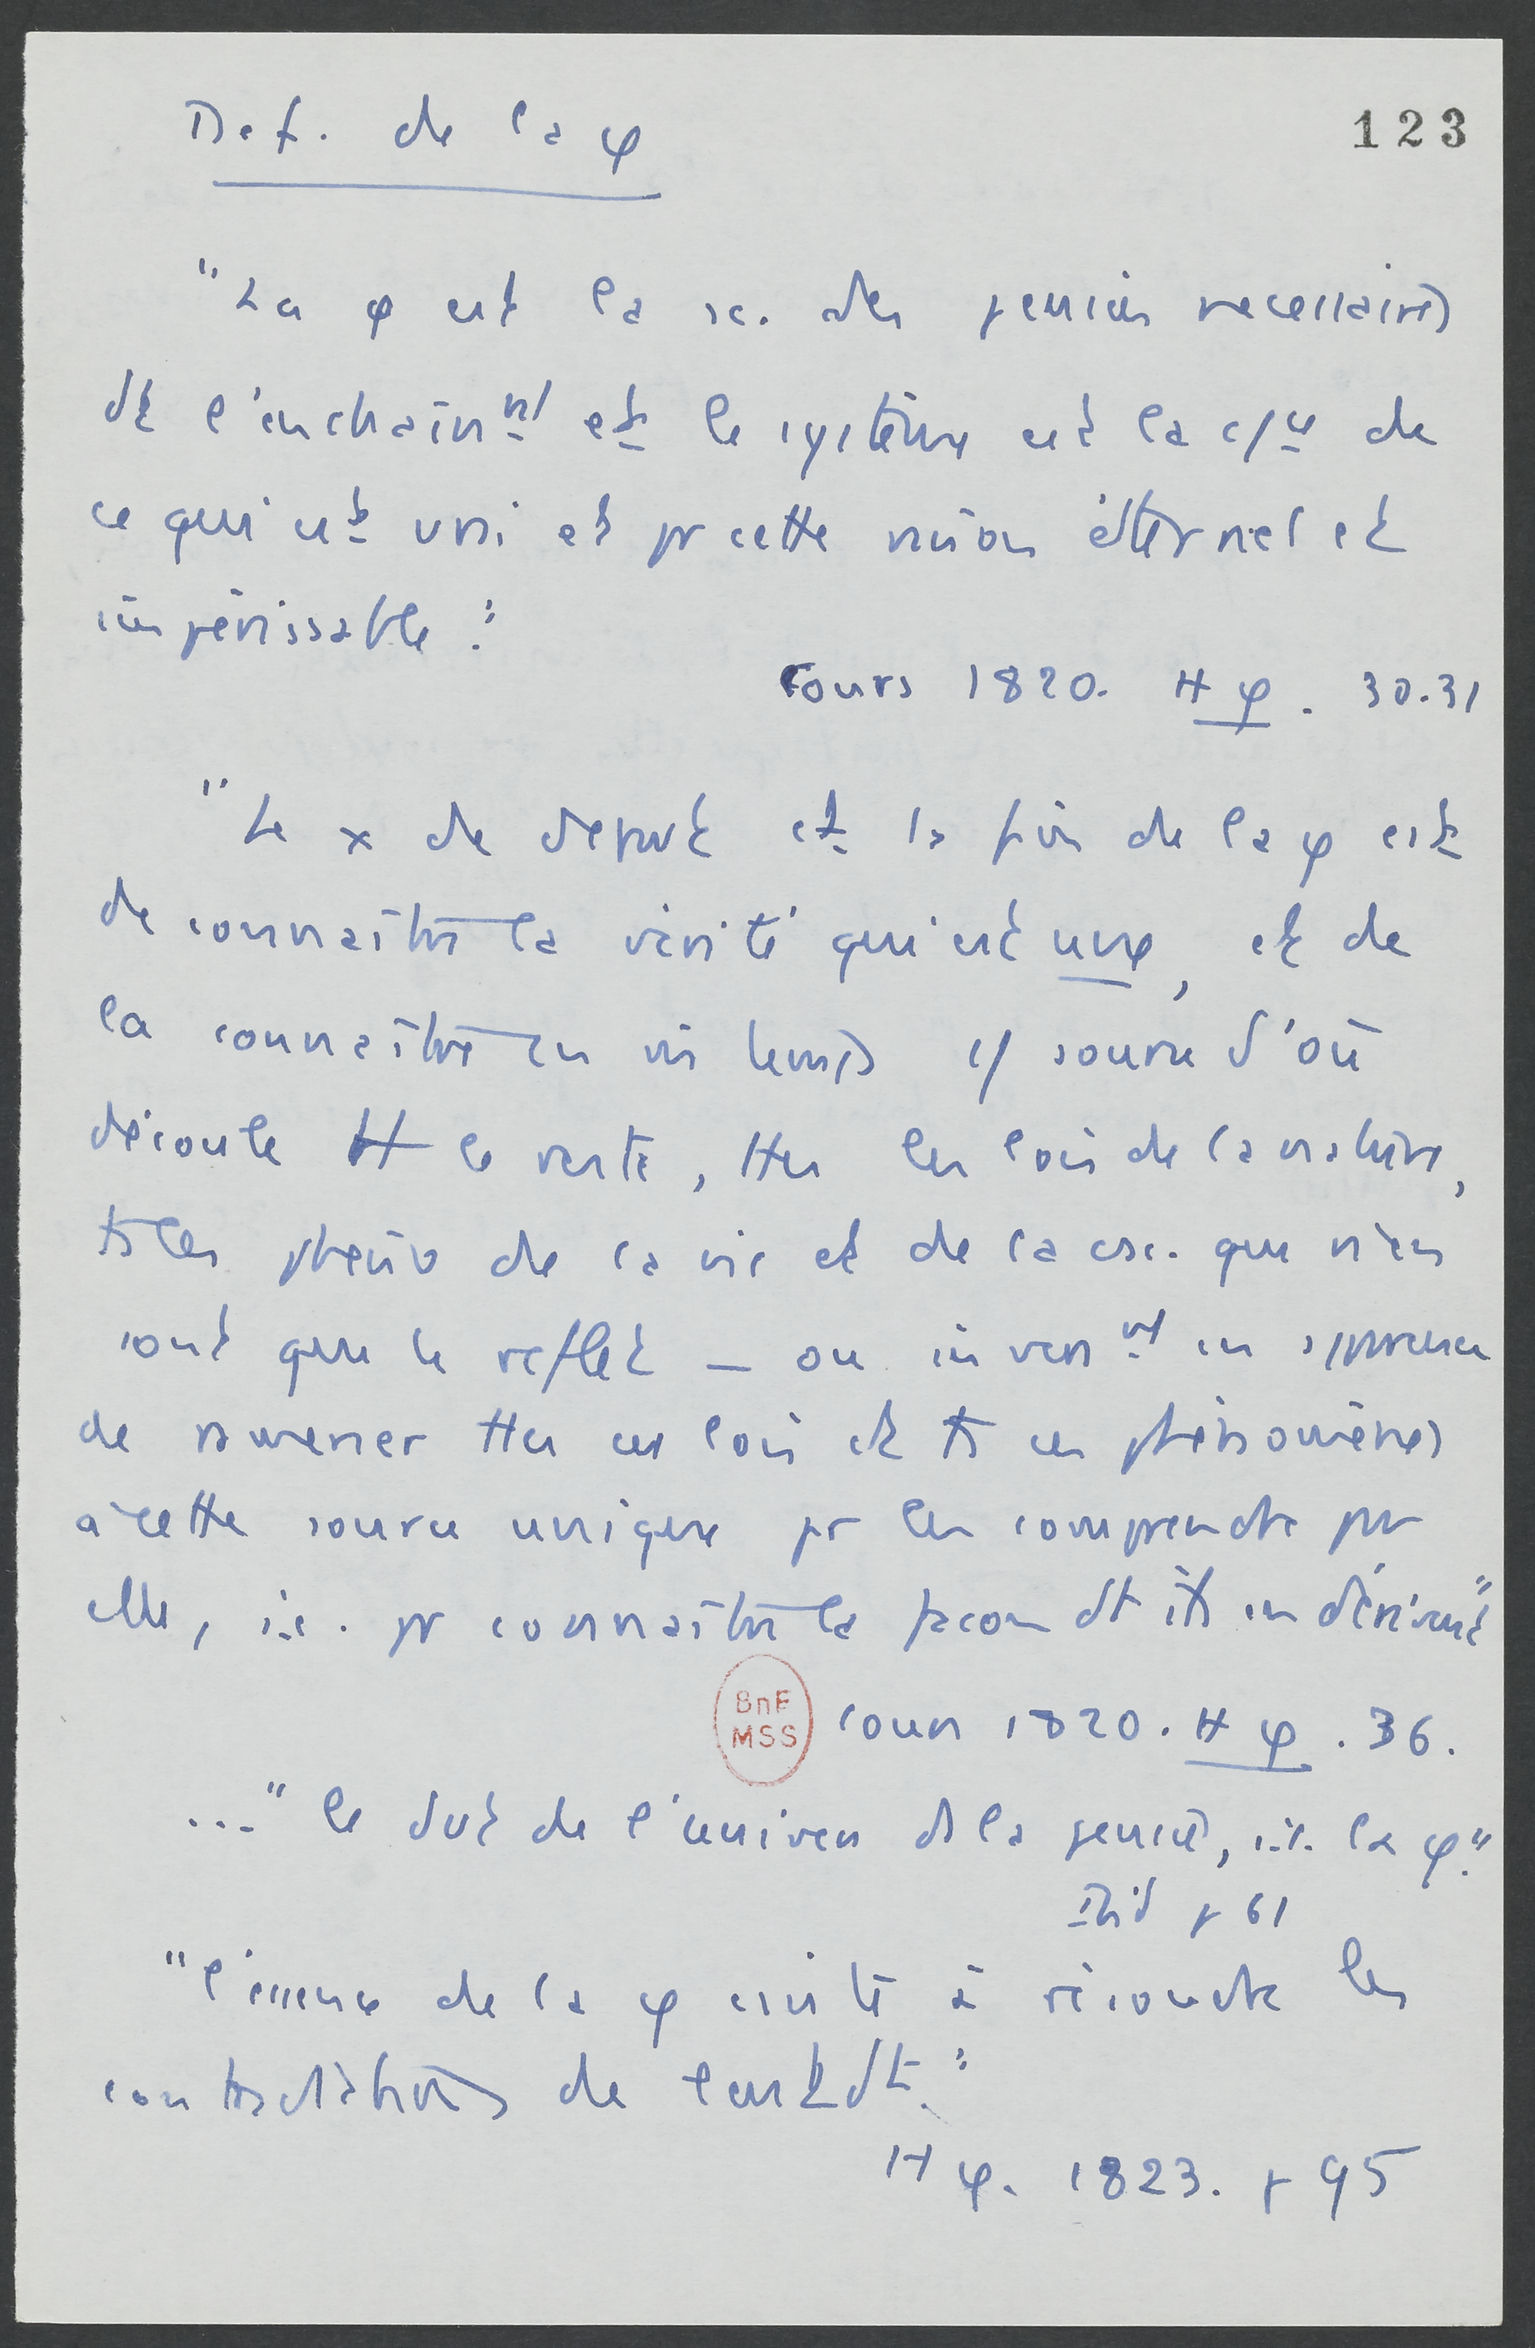 Def. de la φ
123
"La φ est la sc. des pensées necessaires
dt l'enchaînnt et le système est la c/ce de
ce qui est vrai et pr cette raison éternel et
impérissable".
Cours 1820. Hφ. 30.31
"Le x de depart et la fin de la φ est
de connaître la vérité qui est une, et de
la connaître en m temps c/ source d'où
découle tt le reste, ttes les lois de la nature,
ts les phéno de la vie et de la csc. qui n'en
sont que le reflet – ou inversnt en apparence
de ramener ttes ces lois et ts ces phénomènes
à cette source unique pr les comprendre par
elle, i.e. pr connaître la façon dt ils en dérivent"
BnF
MSS
Cours 1820. H φ. 36.
..." le but de l'univers ds la pensée, i.e. la φ."
Ibid p 61
"l'essence de la φ csiste à résoudre les
contradictions de l'entdt."
H φ. 1823. p 95